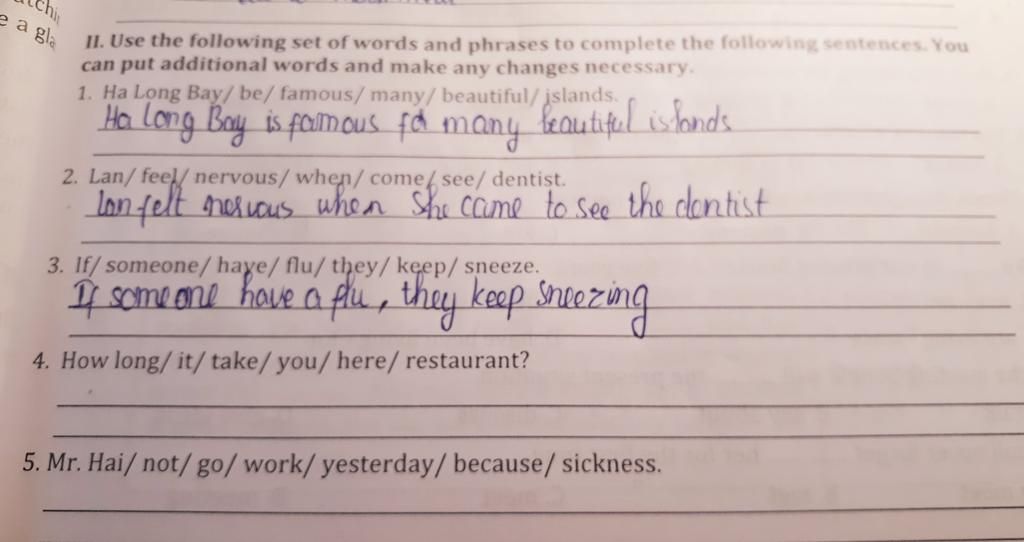 e a gla
II. Use the following set of words and phrases to complete the following sentences. You
can put additional words and make any changes necessary.
1. Ha Long Bay/ be/ famous/ many/ beautiful/ islands.
Ha Long Bay is famous for many beautiful islands
2. Lan/ feel/ nervous/ when/ come/ see/ dentist.
Lan felt nervous when she came to see the dentist
3. If/ someone/ have/ flu/ they/ keep/ sneeze.
If someone have a flu, they keep sneezing
4. How long/ it/ take/ you/ here/ restaurant?
5. Mr. Hai/ not/ go/ work/ yesterday/ because/ sickness.